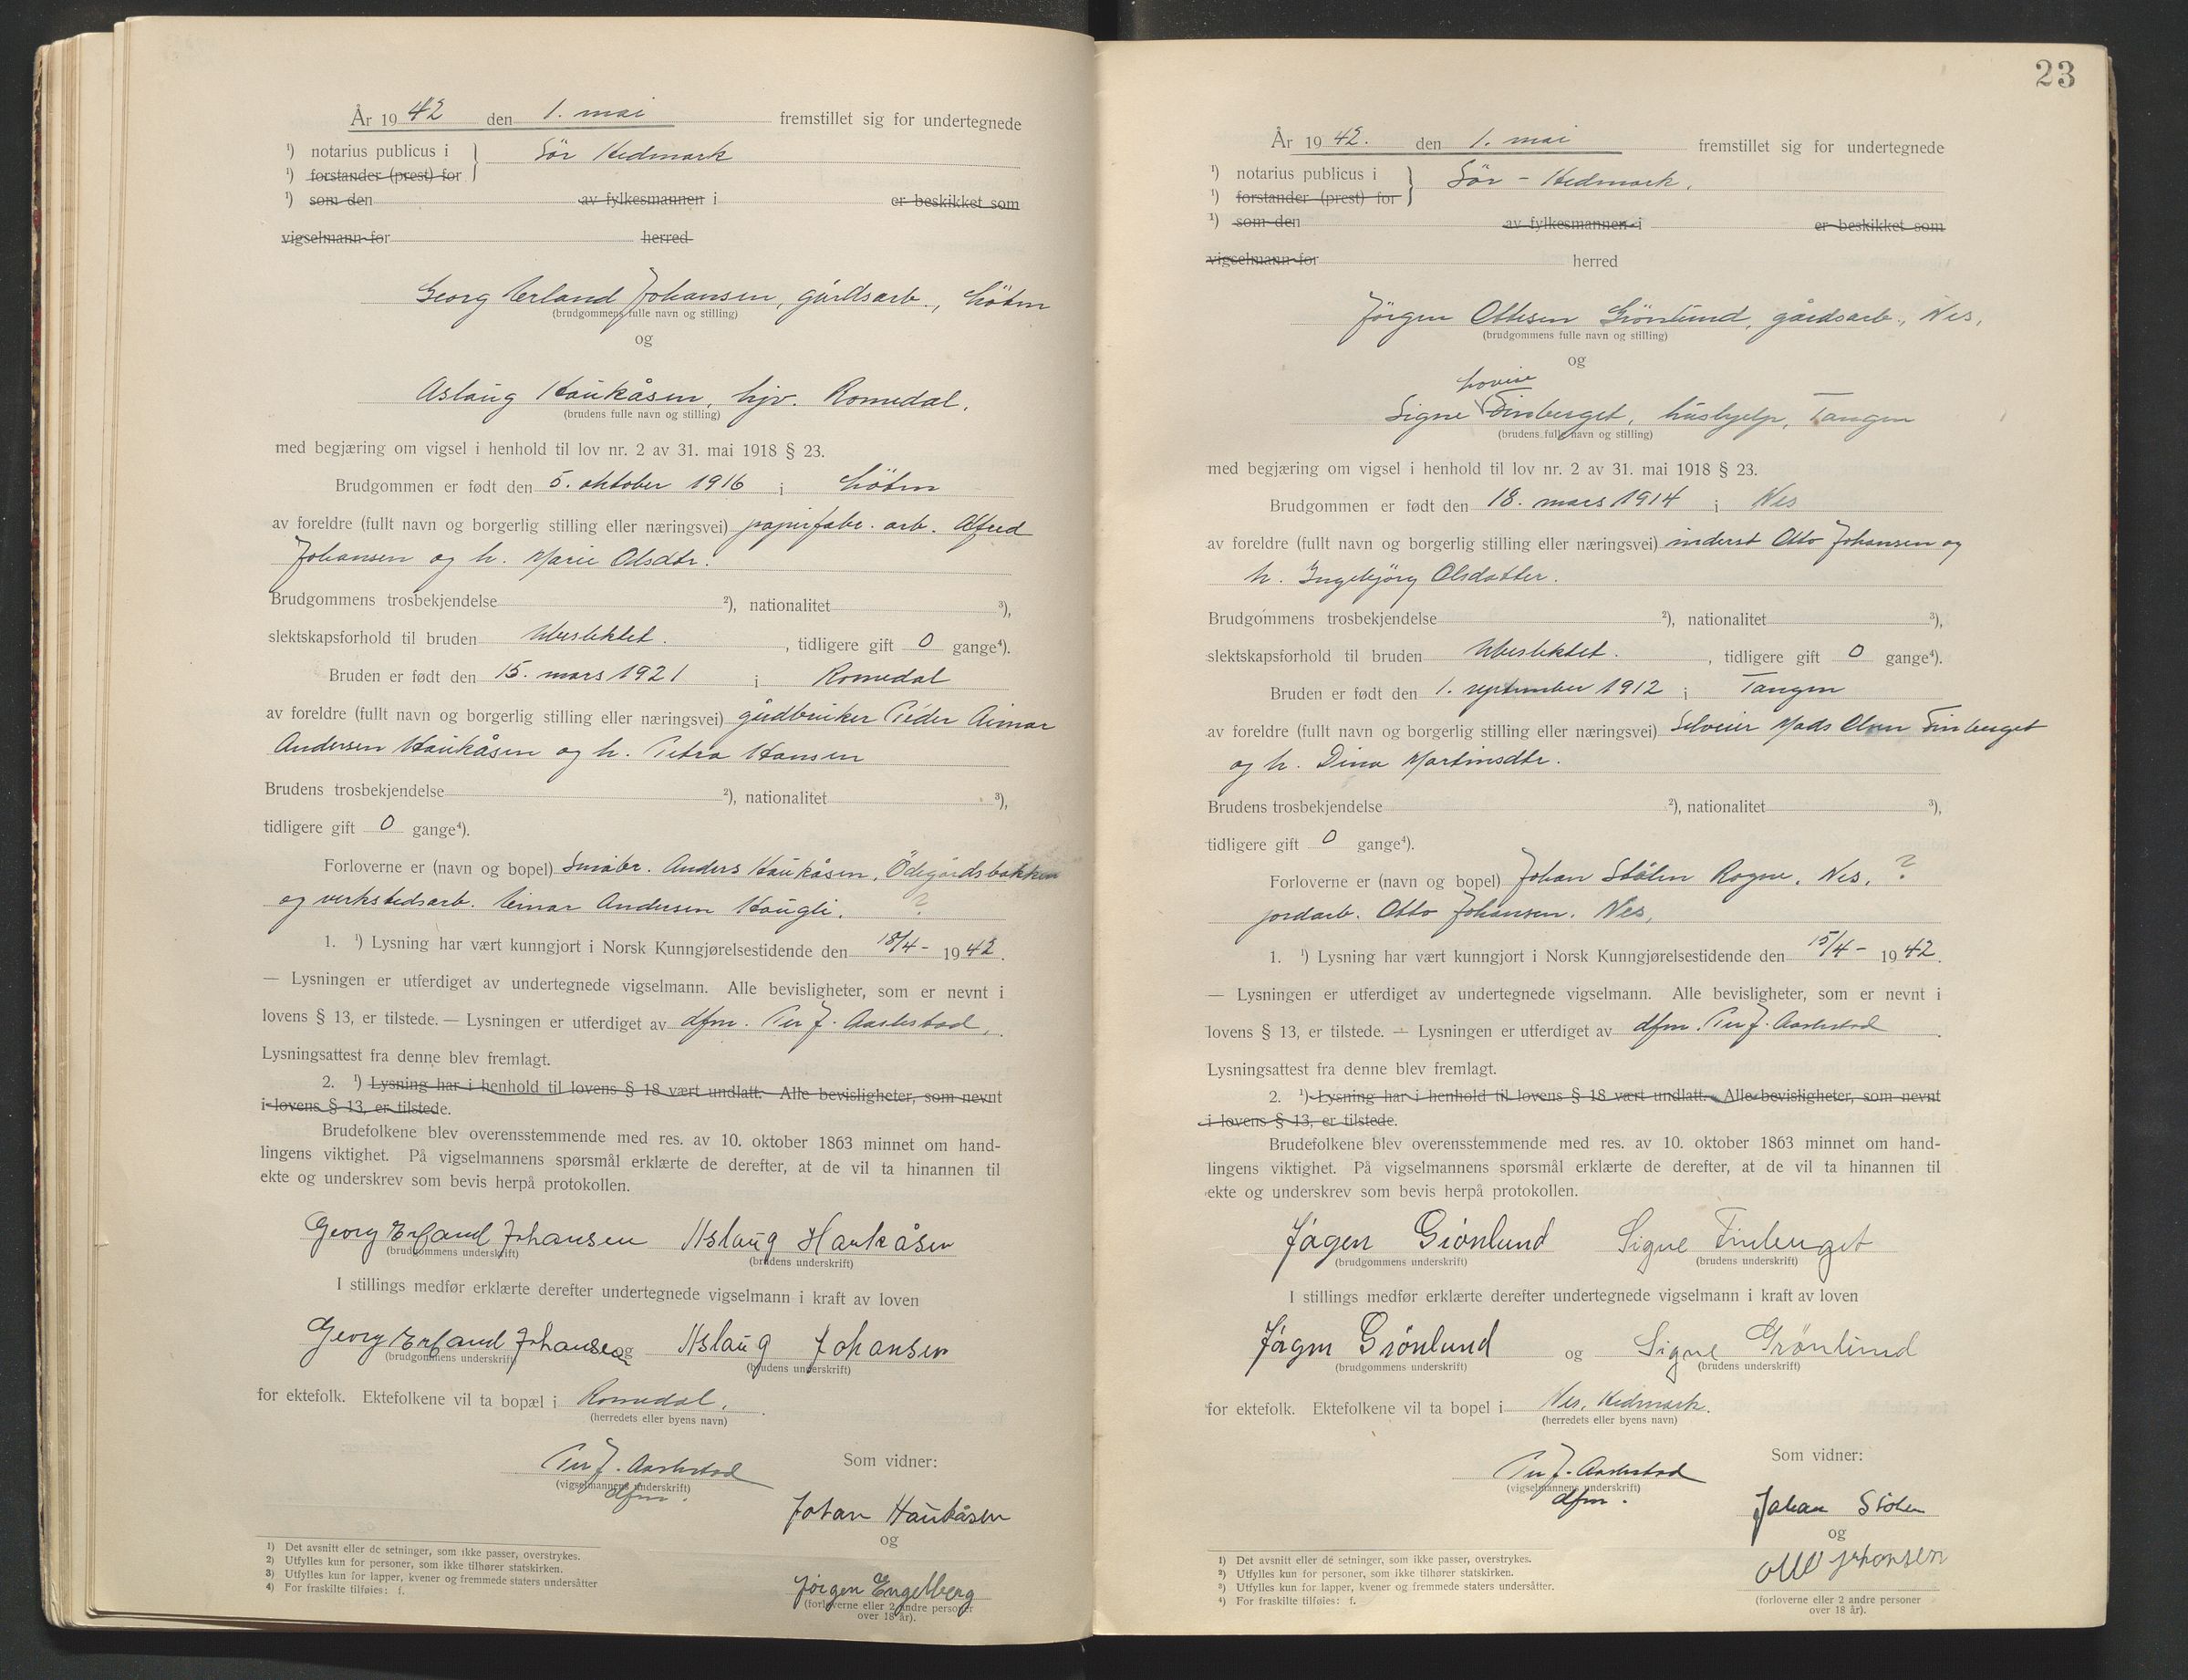 År 1942 den 1. mai fremstillet sig for undertegnede
¹) notarius publicus i } Sör Hedmark
¹) forstander (prest) for
¹) som den av fylkesmannen i er beskikket som
vigselmann for herred
Georg Erland Johansen, gårdsarb., Löten
(brudgommens fulle navn og stilling)
og
Aslaug Haukåsen, hjv. Romedal.
(brudens fulle navn og stilling)
med begjæring om vigsel i henhold til lov nr. 2 av 31. mai 1918 § 23.
Brudgommen er født den 5. oktober 1916 i Löten
av foreldre (fullt navn og borgerlig stilling eller næringsvei) papirfabr. arb. Alfred
Johansen og h. Marie Olsdtr.
Brudgommens trosbekjendelse ²), nationalitet ³),
slektskapsforhold til bruden Ubeslektet. , tidligere gift 0 gange⁴).
Bruden er født den 15. mars 1921 i Romedal
av foreldre (fullt navn og borgerlig stilling eller næringsvei) gårdbruker Peder Aimar
Andersen Haukåsen og h. Petra Hansen
Brudens trosbekjendelse ²), nationalitet ³),
tidligere gift 0 gange⁴).
Forloverne er (navn og bopel) Småbr. Anders Haukåsen, Ödegårdsbakken
og verkstedsarb. Einar Andersen Haugli. ?
1. ¹) Lysning har vært kunngjort i Norsk Kunngjørelsestidende den 18/4 - 1942.
— Lysningen er utferdiget av undertegnede vigselmann. Alle bevisligheter, som er nevnt i
lovens § 13, er tilstede. — Lysningen er utferdiget av dfm. Per J. Aarrestad.
Lysningsattest fra denne blev fremlagt.
2. ¹) Lysning har i henhold til lovens § 18 vært undlatt. Alle bevisligheter, som nevnt
i lovens § 13, er tilstede.
Brudefolkene blev overensstemmende med res. av 10. oktober 1863 minnet om hand-
lingens viktighet. På vigselmannens spørsmål erklærte de derefter, at de vil ta hinannen til
ekte og underskrev som bevis herpå protokollen.
Georg Erland Johansen Aslaug Haukåsen
(brudgommens underskrift) (brudens underskrift)
I stillings medfør erklærte derefter undertegnede vigselmann i kraft av loven
Georg Erland Johansen og Aslaug Johansen
(brudgommens underskrift) (brudens underskrift)
for ektefolk. Ektefolkene vil ta bopæl i Romedal.
(herredets eller byens navn)
Per J. Aarrestad Som vidner:
(vigselmannens underskrift)
dfm.
Johan Haukåsen
og
Jørgen Engelberg
(forloverne eller 2 andre personer
over 18 år).
¹) Det avsnitt eller de setninger, som ikke passer, overstrykes.
²) Utfylles kun for personer, som ikke tilhører statskirken.
³) Utfylles kun for lapper, kvener og fremmede staters undersåtter
⁴) For fraskilte tilføies: f.
23
År 1942. den 1. mai fremstillet sig for undertegnede
¹) notarius publicus i } Sör - Hedmark.
¹) forstander (prest) for
¹) som den av fylkesmannen i er beskikket som
vigselmann for herred
Jörgen Ottesen Grönlund, gårdsarb., Nes.
(brudgommens fulle navn og stilling)
og
Lovise
Signe Finberget, hushjelp, Tangen
(brudens fulle navn og stilling)
med begjæring om vigsel i henhold til lov nr. 2 av 31. mai 1918 § 23.
Brudgommen er født den 18. mars 1914 i Nes
av foreldre (fullt navn og borgerlig stilling eller næringsvei) inderst Otto Johansen og
h. Ingebjörg Olsdatter.
Brudgommens trosbekjendelse ²), nationalitet ³),
slektskapsforhold til bruden Ubeslektet. , tidligere gift 0 gange⁴).
Bruden er født den 1. september 1912 i Tangen
av foreldre (fullt navn og borgerlig stilling eller næringsvei) Selveier Mads Olsen Finberget
og h. Dina Martinsdtr.
Brudens trosbekjendelse ²), nationalitet ³),
tidligere gift 0 gange⁴).
Forloverne er (navn og bopel) Johan Stölen Rogne, Nes, ?
jordarb. Otto Johansen, Nes,
1. ¹) Lysning har vært kunngjort i Norsk Kunngjørelsestidende den 15/4 - 1942.
— Lysningen er utferdiget av undertegnede vigselmann. Alle bevisligheter, som er nevnt i
lovens § 13, er tilstede. — Lysningen er utferdiget av dfm. Per J. Aarrestad.
Lysningsattest fra denne blev fremlagt.
2. ¹) Lysning har i henhold til lovens § 18 vært undlatt. Alle bevisligheter, som nevnt
i lovens § 13, er tilstede.
Brudefolkene blev overensstemmende med res. av 10. oktober 1863 minnet om hand-
lingens viktighet. På vigselmannens spørsmål erklærte de derefter, at de vil ta hinannen til
ekte og underskrev som bevis herpå protokollen.
Jögen Grönlund Signe Finberget
(brudgommens underskrift) (brudens underskrift)
I stillings medfør erklærte derefter undertegnede vigselmann i kraft av loven
Jögen Grönlund og Signe Grönlund
(brudgommens underskrift) (brudens underskrift)
for ektefolk. Ektefolkene vil ta bopel i Nes, Hedmark.
(herredets eller byens navn)
Per J. Aarrestad Som vidner:
(vigselmannens underskrift)
dfm.
Johan Stölen
og
Otto Johansen
(forloverne eller 2 andre personer
over 18 år).
¹) Det avsnitt eller de setninger, som ikke passer, overstrykes.
²) Utfylles kun for personer, som ikke tilhører statskirken.
³) Utfylles kun for lapper, kvener og fremmede staters undersåtter.
⁴) For fraskilte tilføies: f.